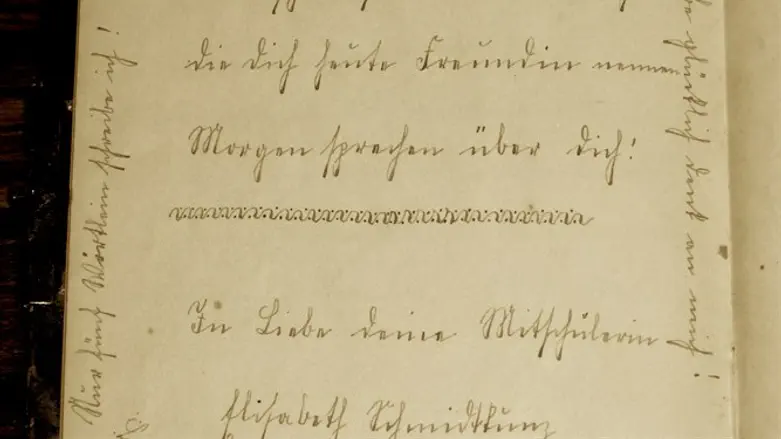 die dich heute Freundin nennen
Morgen sprechen über dich!
In Liebe deine Mitschülerin
Elisabeth Schmidtkunz
Nur fünf Wörtlein schreibe ich!
glücklich denk an mich!